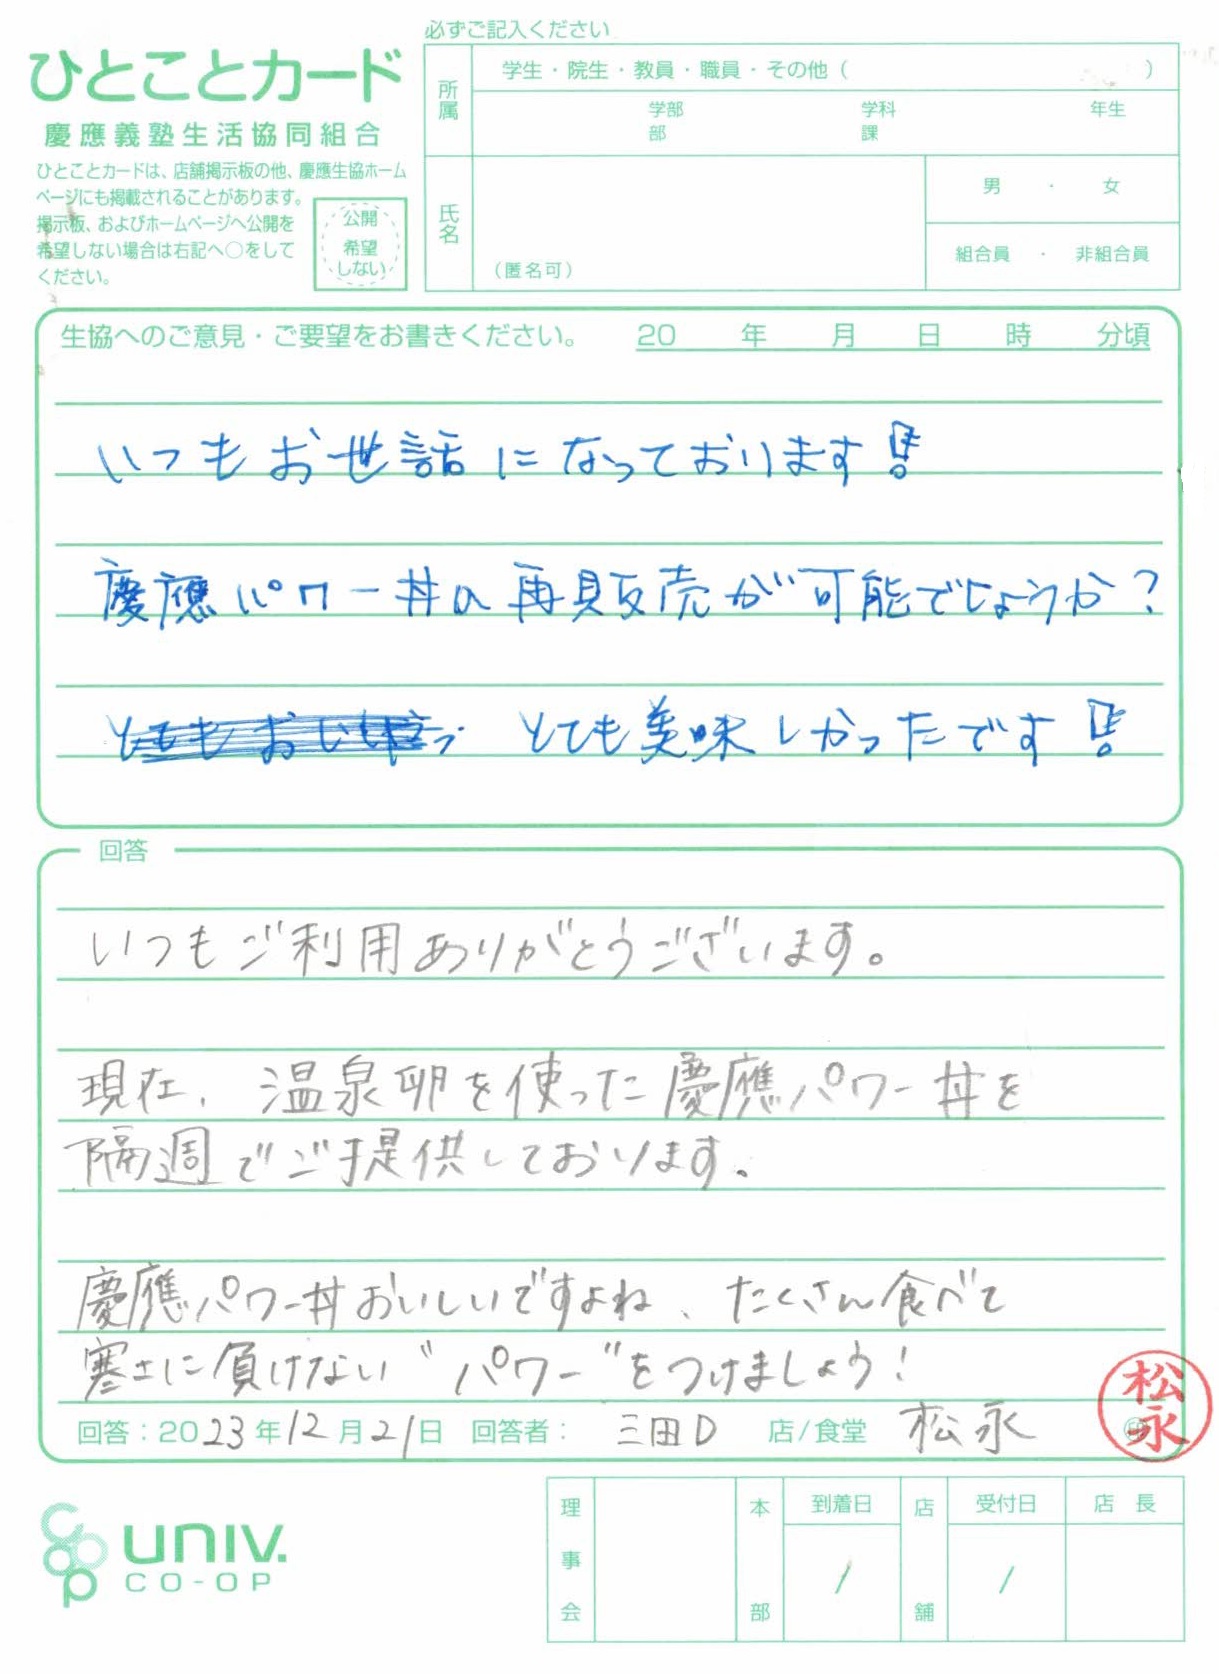 必ずご記入ください
ひとことカード
慶應義塾生活協同組合
ひとことカードは、店舗掲示板の他、慶應生協ホーム
ページにも掲載されることがあります。
掲示板、およびホームページへ公開を
希望しない場合は右記へ○をして
ください。
公開
希望
しない
所属
学生・院生・教員・職員・その他（ ）
学部 学科 年生
部 課
氏名
（匿名可）
男 ・ 女
組合員 ・ 非組合員
生協へのご意見・ご要望をお書きください。 20 年 月 日 時 分頃
いつもお世話になっております!!
慶應パワー丼の再販売が可能でしょうか？
とても美味しかったです!!
回答
いつもご利用ありがとうございます。
現在、温泉卵を使った慶應パワー丼を
隔週でご提供しております。
慶應パワー丼おいしいですよね、たくさん食べて
寒さに負けない“パワー”をつけましょう！
回答：2023年12月21日 回答者： 三田D 店/食堂 松永
松永
univ.
CO-OP
理事会
本部
到着日
/
店舗
受付日
/
店長